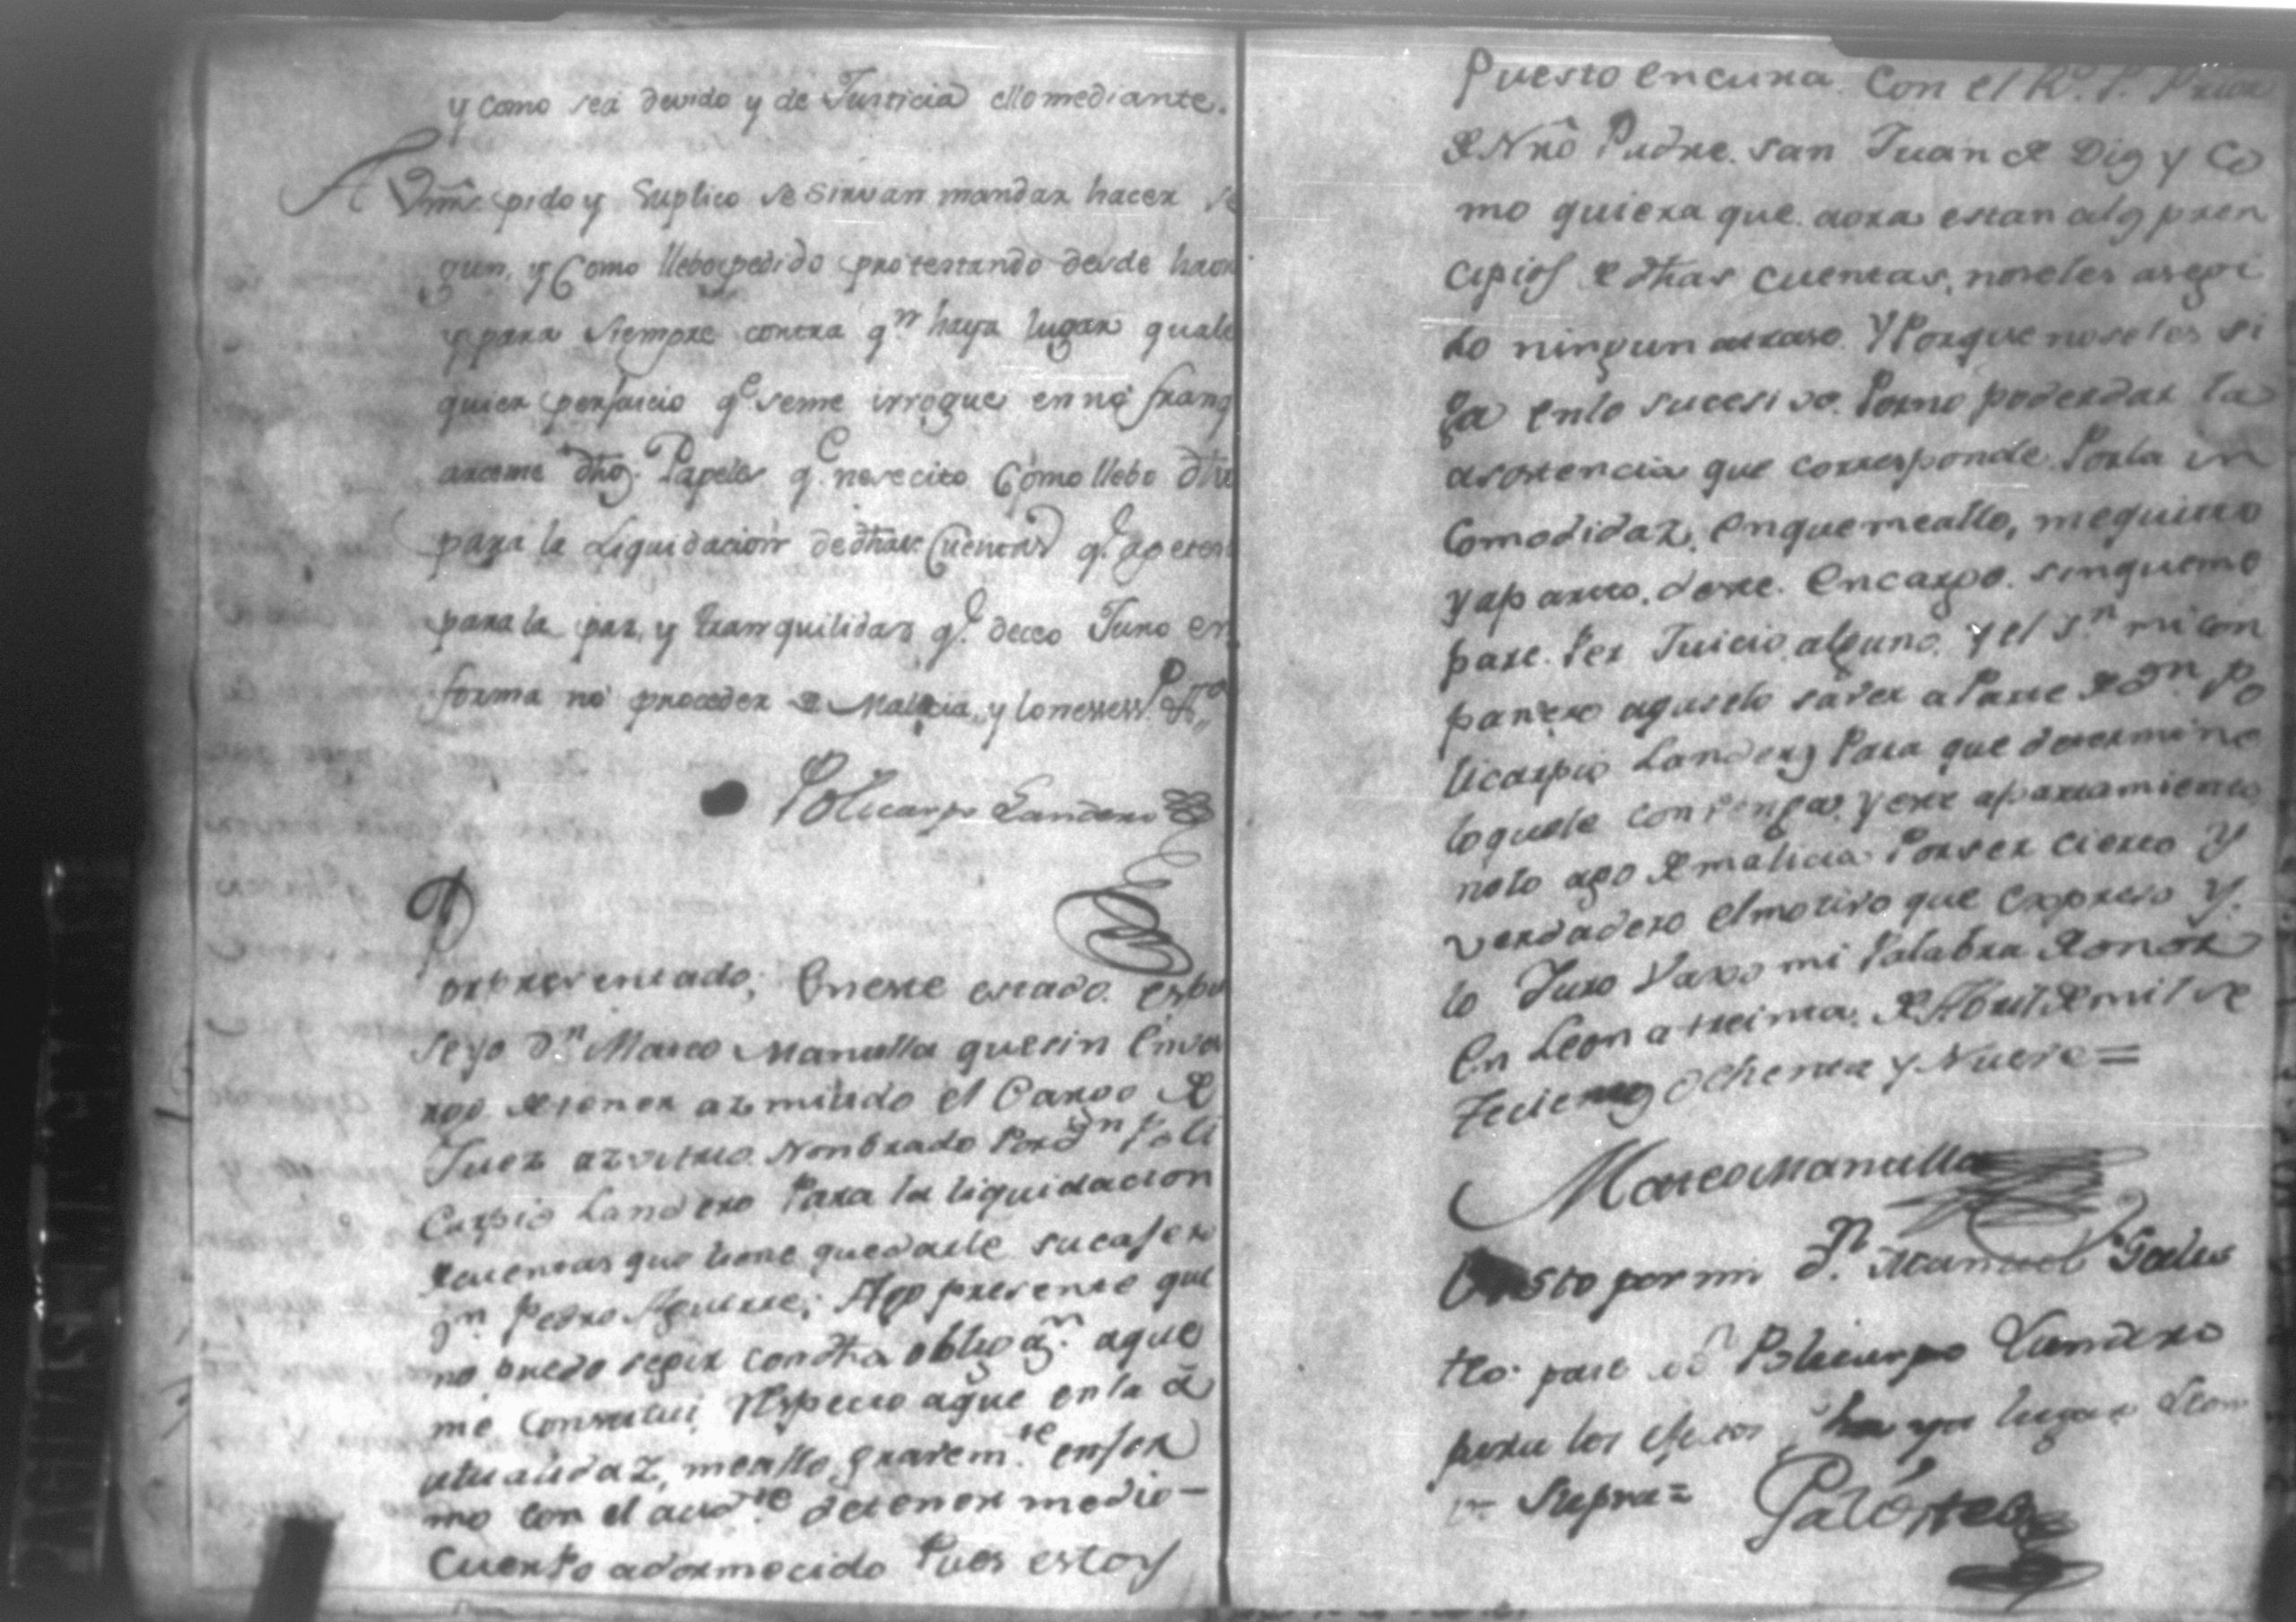 y como sea devido y de Justicia ello mediante.
A Vms. pido y Suplico se sirvan mandar hacer se
gun, y Como llebo pedido protestando desde haora
y para siempre contra qn haya lugar quales
quier perjuicio qe seme irrogue en no franq
arceme dhos. Papeles qe. nesecito Como llebo dho
para la Liquidacion de dhas Cuentas qe. apetesco
para la paz, y tranquilidaz qe. deceo Juro en
forma no proceder de Malicia, y lo nesess.o &.a
Policarpo Landero
Por presentado; En este estado espu
se yo Dn Marco Mansilla que sin Emva
rgo de tener azmitido el Cargo de
Juez azvitro Nombrado Por dn Poli
Carpio Landero Para la liquidacion
de cuentas que tiene que darle su casero
dn. Pedro Aguirre; Ago presente que
no puedo segir con dha obligan. a que
me constitui, Respecto a que en la a
ctualidaz, me allo gravemte. enfer
mo con el acsidte. de tener medio
Cuerpo adormecido Pues estoy
Puesto en cura. Con el R.o P. Prior
de Nro Padre san Juan de Dios y Co
mo quiera que aora estan a los pren
cipios de dhas cuentas, no se les a segi
do ningun atraso. Y Porque no se les si
ga en lo sucesivo. Por no poder dar la
asistencia que corresponde Por la in
Comodidaz, en que me allo, me quito
y aparto, de este. Encargo. sin que me
pare. Per Juicio alguno. y el Sn mi com
panero aguselo saver a Parte de dn Po
licarpio Landero Para que determine
lo que le convenga. y este apartamiento
no lo ago de malicia Por ser cierto y
verdadero el motivo que expreso y.
lo Juro Vaxo mi Palabra de onor
En Leon a treinta de Abril de mil se
tecientos Ochenta y Nueve =
Marco Mansilla
Visto por mi dn. Manuel
para los efectos haya lugar Leon
Supra =